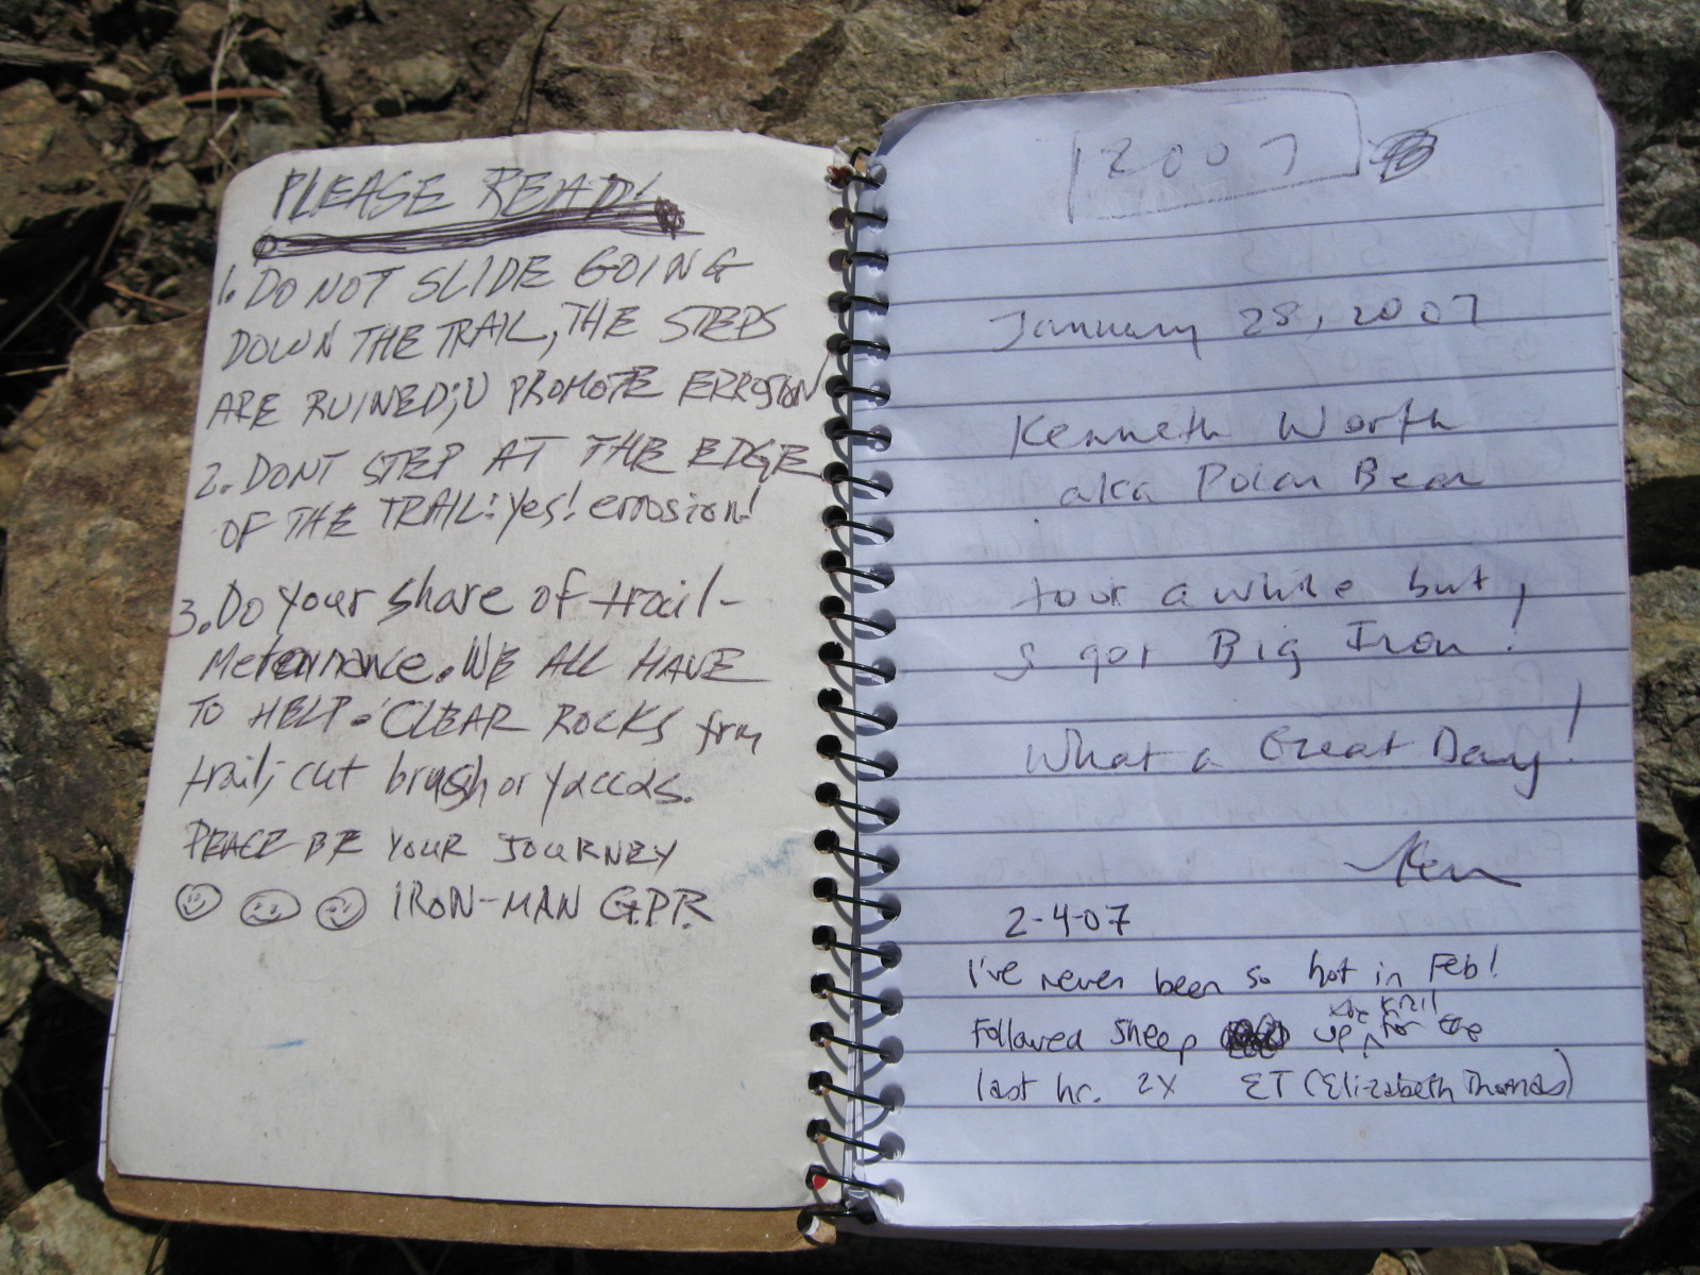 PLEASE READ!
1. DO NOT SLIDE GOING
DOWN THE TRAIL, THE STEPS
ARE RUINED; U PROMOTE ERROSION
2. DONT STEP AT THE EDGE
OF THE TRAIL: Yes! erosion!
3. Do your share of trail-
Metennance. WE ALL HAVE
TO HELP. CLEAR ROCKS from
trail; cut brush or yaccas.
PEACE BE YOUR JOURNEY
IRON-MAN G.P.R.
2007
January 28, 2007
Kenneth Worth
aka Polar Bear
took a while but,
I got Big Iron!
What a Great Day!
Ken
2-4-07
I've never been so hot in Feb!
Followed sheep up the trail for the
last hr. 2X ET (Elizabeth Thomas)